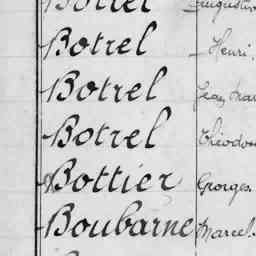 Botrel Augustin
Botrel Henri.
Botrel Jean
Botrel Théodore
Bottier Georges.
Boubarne Marcel.